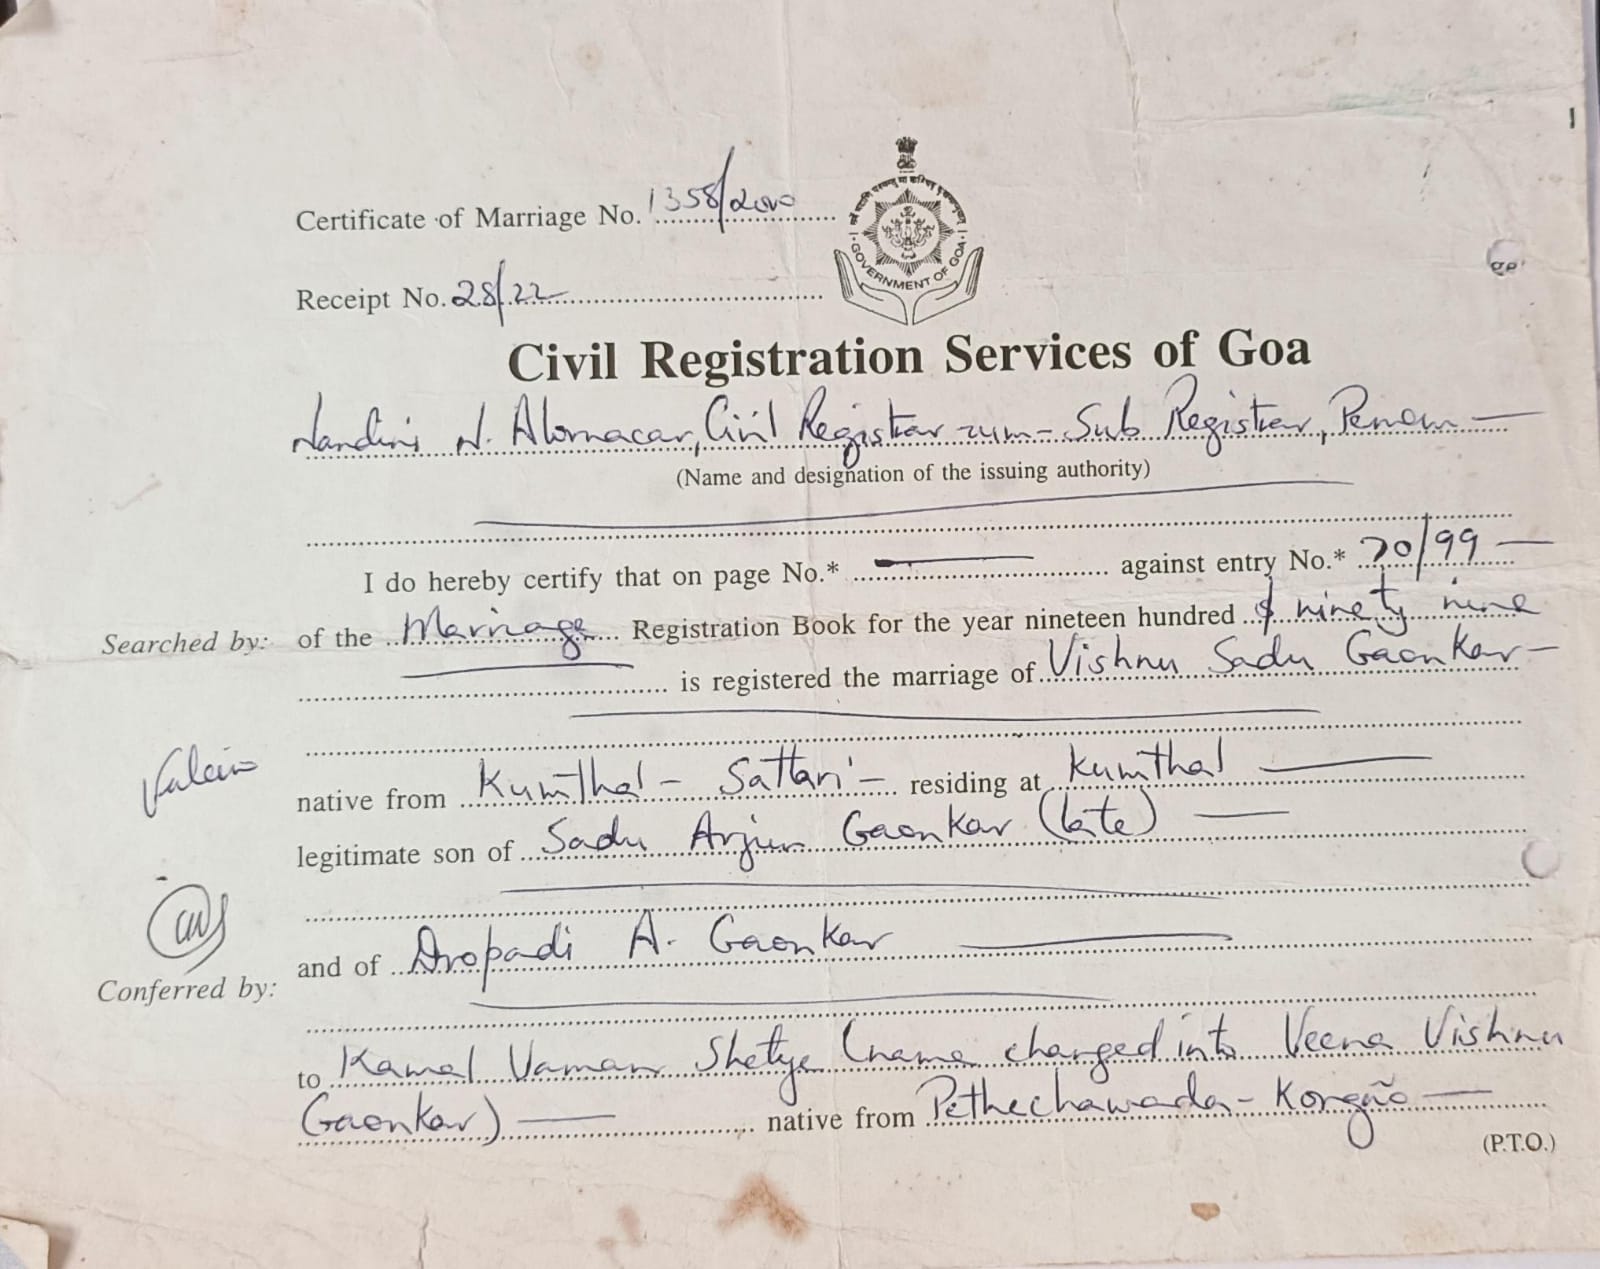 Certificate of Marriage No. 1358/2000
Receipt No. 28/22
GOVERNMENT OF GOA
Civil Registration Services of Goa
Nandini N. Alornacar, Civil Registrar cum-Sub Registrar, Pernem
(Name and designation of the issuing authority)
I do hereby certify that on page No.* against entry No.* 70/99
Searched by: of the Marriage Registration Book for the year nineteen hundred & ninety nine
is registered the marriage of Vishnu Sadu Gaonkar
native from Kumthal - Sattari - residing at Kumthal
legitimate son of Sadu Arjun Gaonkar (late)
and of Dropadi A. Gaonkar
Conferred by:
to Kamal Vaman Shetye (name changed into Veena Vishnu
Gaonkar) native from Pethechawada - Korgão
(P.T.O.)